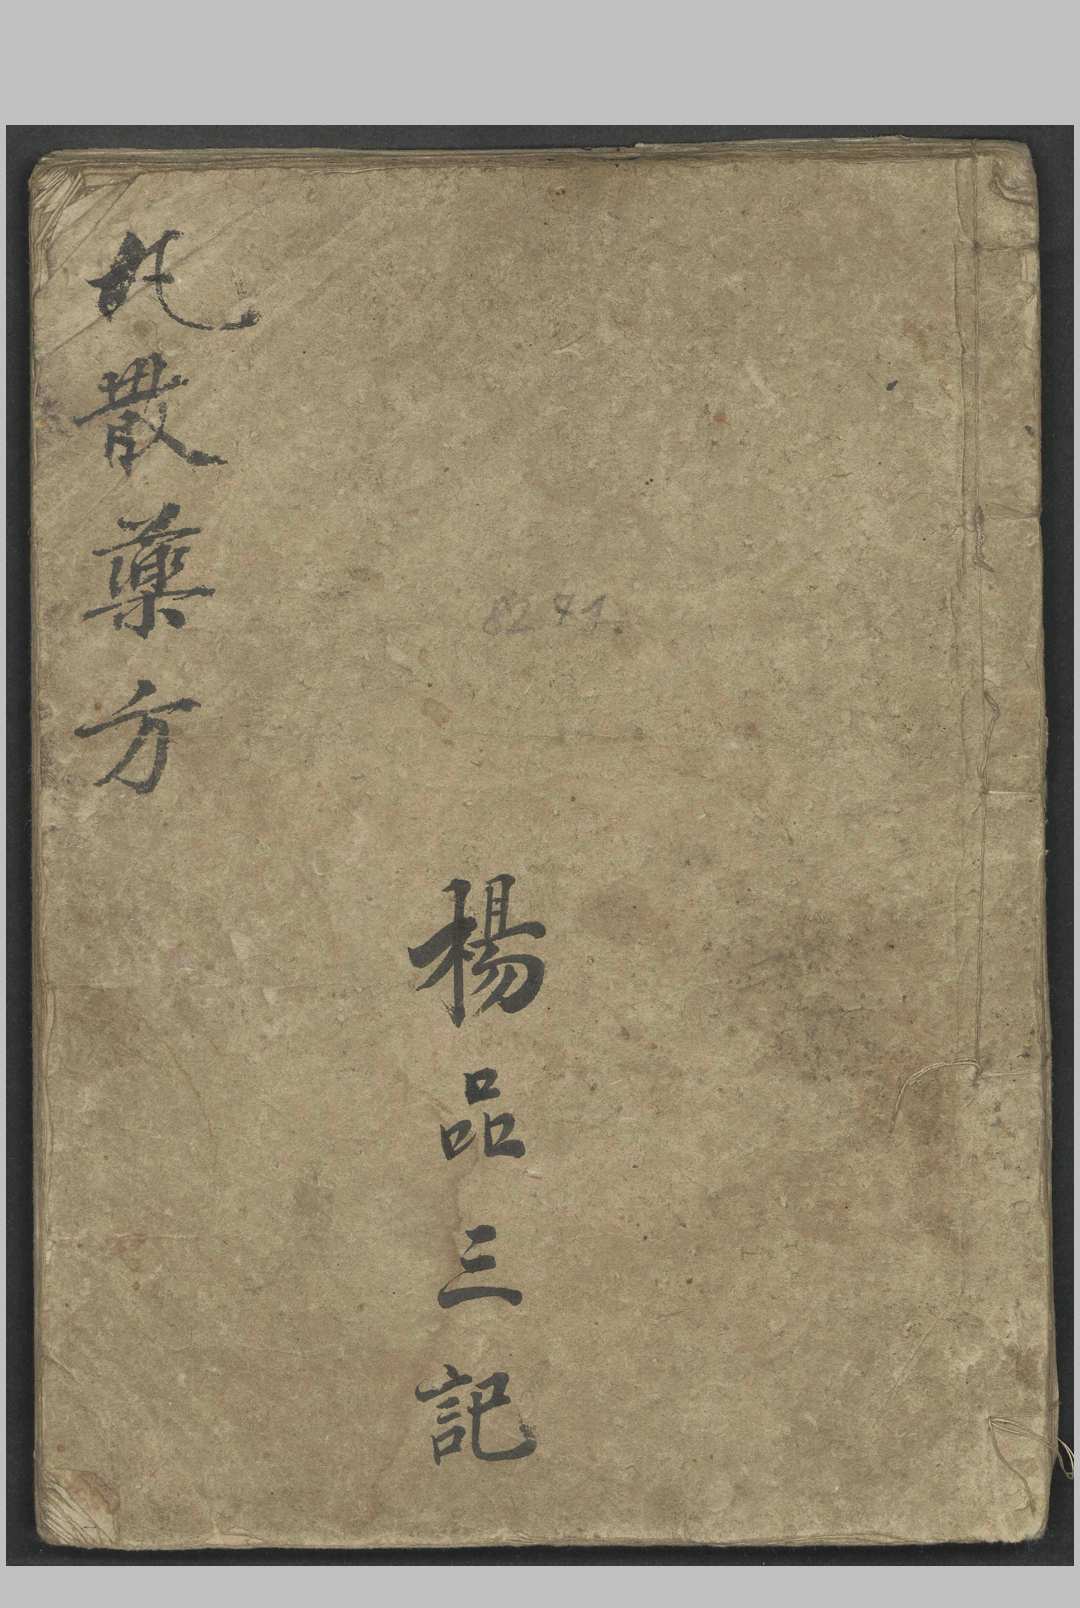 丸散藥方
楊品三記
8291